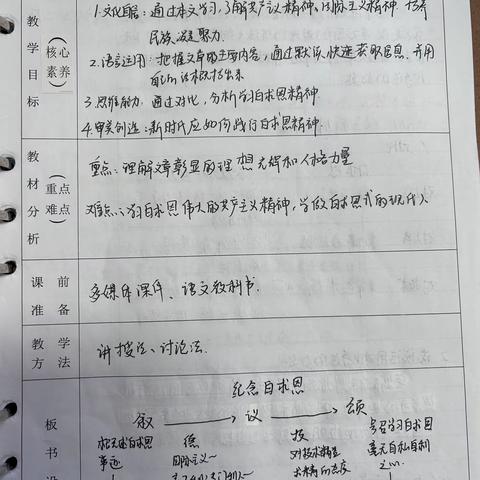 教学目标（核心素养）
1.文化自信：通过本文学习，了解共产主义精神、国际主义精神，培养
民族凝聚力.
2.语言运用：把握文章的主要内容，通过默读，快速获取信息，并用
自己的话概括出来
3.思维能力：通过对比，分析学习白求恩精神.
4.审美创造：新时代应如何践行白求恩精神.
教材分析（重点难点）
重点：理解文章彰显的理想光辉和人格力量
难点：学习白求恩伟大的共产主义精神，学做白求恩式的现代人
课前准备
多媒体课件、语文教科书.
教学方法
讲授法、讨论法.
板书设
纪念白求恩
叙 → 议 → 颂
概述白求恩 德 技 号召学习白求恩
事迹 国际主义 对技术精益 毫无自私自利
求精的态度 之心